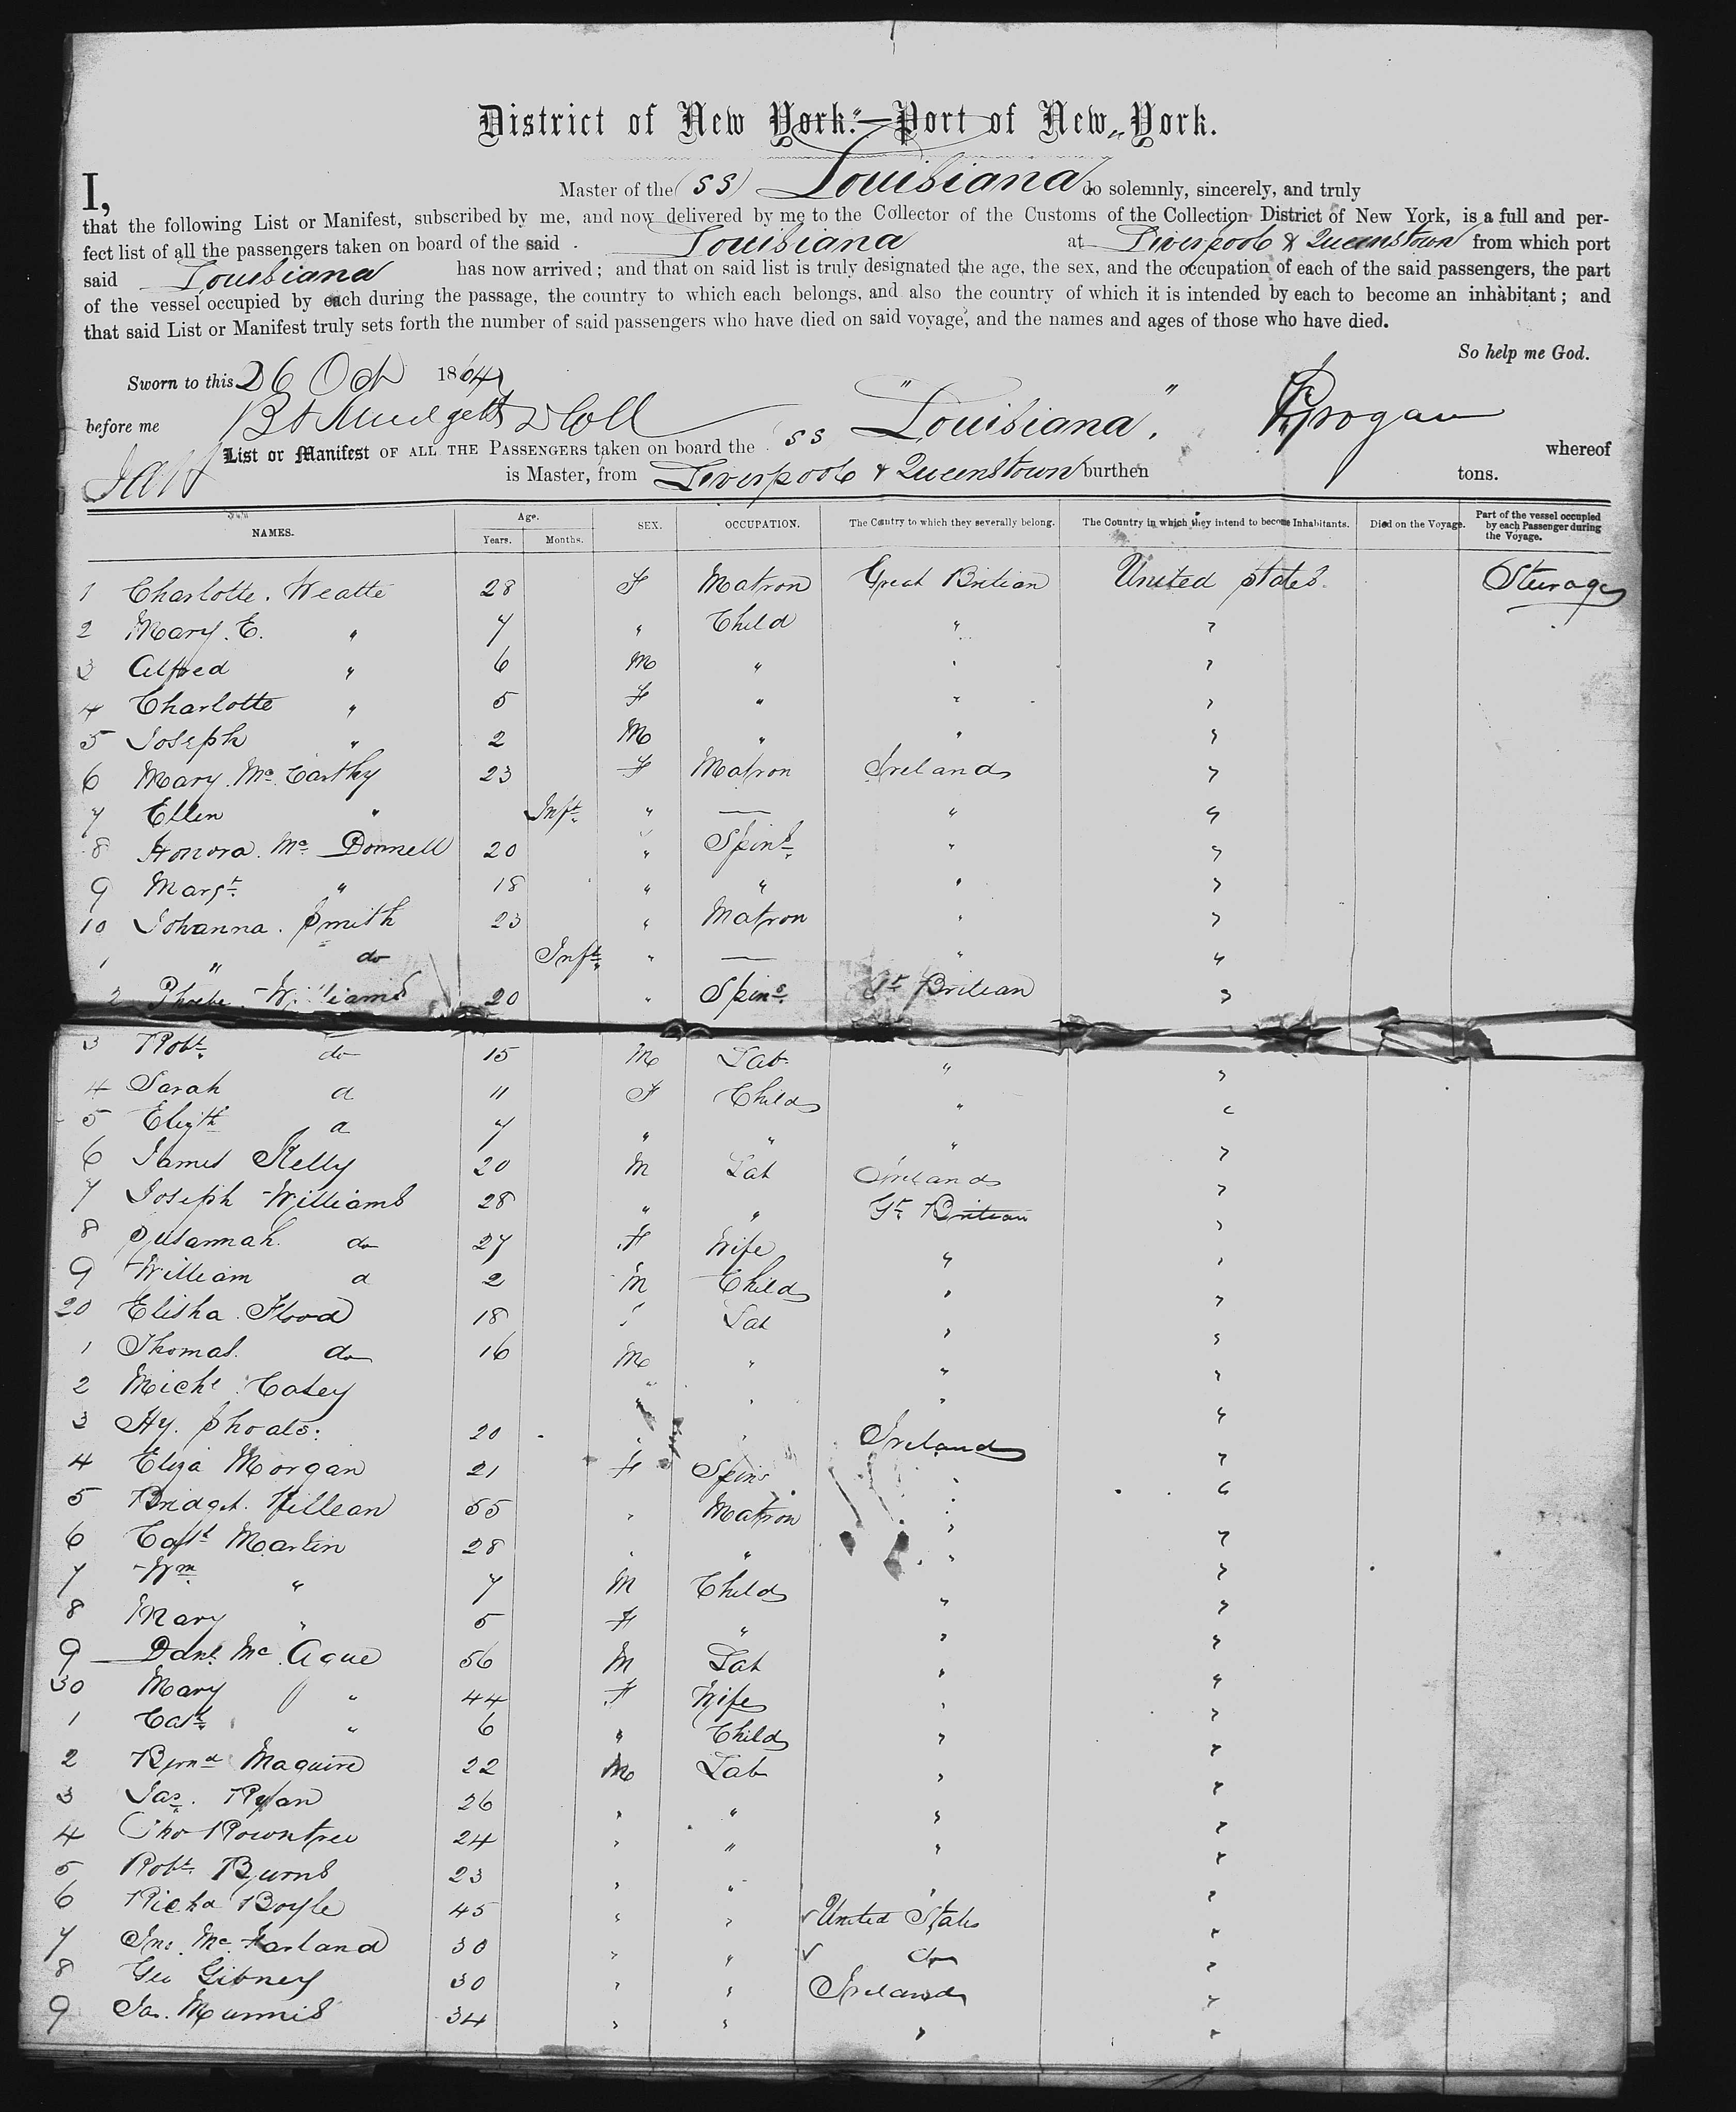 District of New York.—Port of New York.
I, Master of the (SS) Louisiana do solemnly, sincerely, and truly
that the following List or Manifest, subscribed by me, and now delivered by me to the Collector of the Customs of the Collection District of New York, is a full and per-
fect list of all the passengers taken on board of the said Louisiana at Liverpool & Queenstown from which port
said Louisiana has now arrived; and that on said list is truly designated the age, the sex, and the occupation of each of the said passengers, the part
of the vessel occupied by each during the passage, the country to which each belongs, and also the country of which it is intended by each to become an inhabitant; and
that said List or Manifest truly sets forth the number of said passengers who have died on said voyage, and the names and ages of those who have died.
So help me God.
Sworn to this 26 Oct 1864
before me
List or Manifest OF ALL THE PASSENGERS taken on board the SS "Louisiana". whereof
is Master, from Liverpool & Queenstown burthen tons.
NAMES. Age. Years. Months. SEX. OCCUPATION. The Country to which they severally belong. The Country in which they intend to become Inhabitants. Died on the Voyage. Part of the vessel occupied by each Passenger during the Voyage.
1 Charlotte. Weatte 28 F Matron Great Britian United States. Sturage
2 Mary. E. " 7 " Child " "
3 Alfred " 6 M " " "
4 Charlotte " 5 F " " "
5 Joseph " 2 M " " "
6 Mary. Mc. Carthy 23 F Matron Ireland "
7 Ellen " Inft. " — " "
8 Honora. Mc Donnell 20 " Spinr. " "
9 Margt. " 18 " " " "
10 Johanna. Smith 23 " Matron " "
1 " do Inft. " — " "
2 Phoebe Williams 20 " Spinr. Gt Britian "
3 Robt. do 15 M Lab. " "
4 Sarah d 11 F Child " "
5 Elizth d 7 " " " "
6 James Kelly 20 M Lab Ireland "
7 Joseph Williams 28 " " Gt. Britian "
8 Susannah. do 27 F Wife " "
9 William d 2 M Child " "
20 Elisha. Flood 18 " Lab " "
1 Thomas. do 16 M " " "
2 Michl Casey " " " "
3 Hy. Shoals. 20 " " Ireland "
4 Eliza Morgan 21 F Spinr " "
5 Bridget. Killean 55 " Matron " "
6 Martin 28 " " " "
7 Wm. " 7 M Child " "
8 Mary " 5 F " " "
9 Danl. Mc. Ague 56 M Lab " "
30 Mary " 44 F Wife " "
1 Cath. " 6 " Child " "
2 Bernd Maguire 22 M Lab " "
3 Jas. Ryan 26 " " " "
4 Tho Rowntree 24 " " " "
5 Robt. Burns 23 " " " "
6 Richd Boyle 45 " " United States "
7 Jno. Mc. Farland 30 " " do "
8 Geo Gibney 30 " " Ireland "
9 Jas. Munnis 34 " " " "